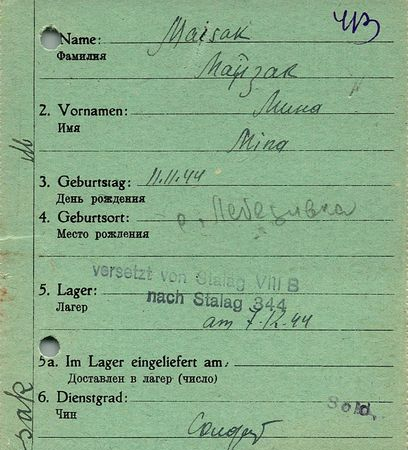 Name: Maisak
Фамилия Майзак
2. Vornamen: Мина
Имя Mina
3. Geburtstag: 11.11.44
День рождения
4. Geburtsort:
Место рождения
versetzt von Stalag VIII B
nach Stalag 344
5. Lager:
Лагер am 7.12.44
5a. Im Lager eingeliefert am:
Доставлен в лагер (число)
6. Dienstgrad: Sold.
Чин Солдат
sak